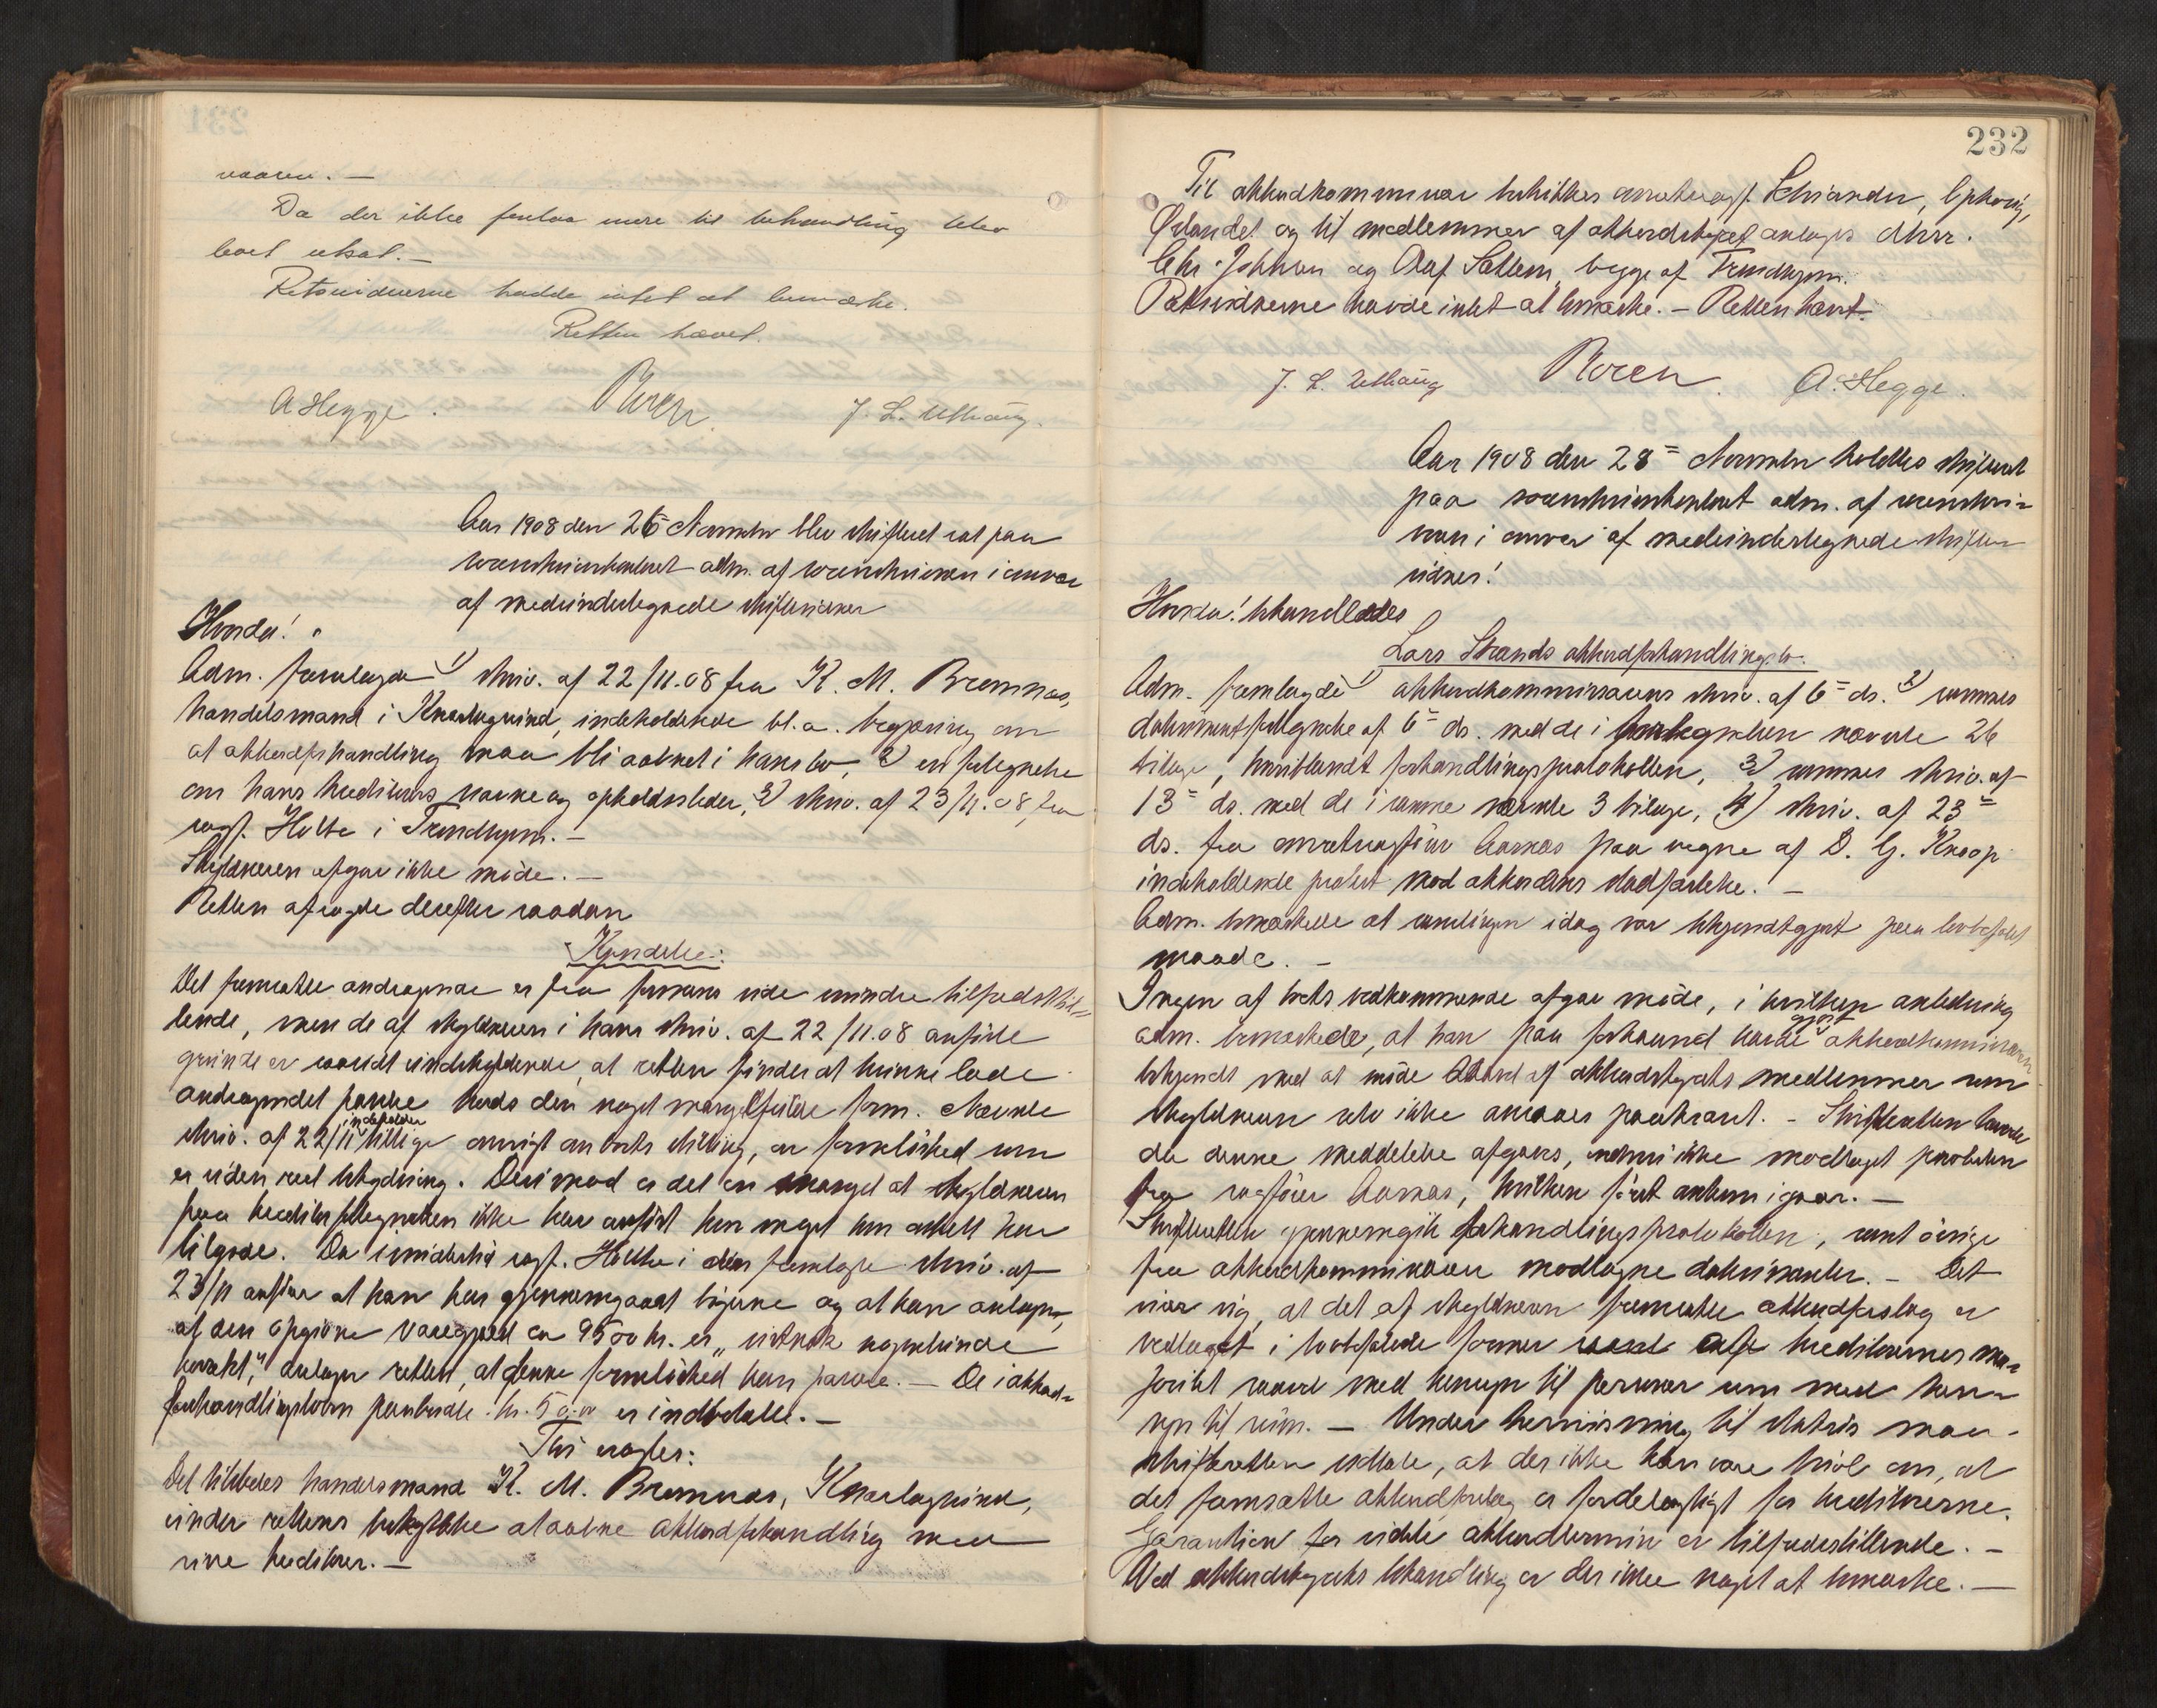 vaaren. —
Da der ikke forelaa mere til behandling blev
boet utsat. —
Retsvidnerne hadde intet at bemærke.
Retten hævet.
A Hegge. J. L. Uthaug.
Aar 1908 den 26 November blev skifteret sat paa
sorenskriverkontoret adm. af sorenskriveren i nærvær
af medundertegnede skiftevidner
Hvorda!
Adm. fremlagde 1) skriv. af 22/11.08 fra K. M. Bremnæs,
handelsmand i Knarlagsund, indeholdende bl. a. begjæring om
at akkordforhandling maa bli aabnet i hans bo, 2) en fortegnelse
om hans kreditorers navne og opholdssteder, 3) skriv. af 23/11.08 fra
sagf. Holte i Trondhjem. —
Skyldneren afgav ikke møde. —
Retten afsagde derefter saadan
Kjendelse:
Det fremsatte andragende er fra formens side mindre tilfredsstil=
lende, men de af skyldneren i hans skriv. af 22/11.08 anførte
grunde er saavidt undskyldende, at retten finder at kunne lade
andragendet passere trods den noget mangelfulde form. Nævnte
skriv. af 22/11 indeholder tillige angivelse om boets stilling, en formløshed som
er uden reel betydning. Derimod er det en mangel at skyldneren
paa kreditorfortegnelsen ikke har anført hvor meget hver enkelt har
tilgode. Da imidlertid sagf. Holte i den fremlagte skriv. af
23/11 anfører at han har gjennemgaaet bøgerne og at han antager,
af den opgivne varegjæld ca 9500 kr. er „vistnok nogenlunde
korrekt", antager retten, at denne formløshed kan passere. — De i akkord=
forhandlingsloven paabudte kr. 50.00 er indbetalte. —
Thi eragtes:
Det tilstedes handelsmand K. M. Bremnæs, Knarlagsund,
under rettens beskyttelse at aabne akkordforhandling med
sine kreditorer. —
232
Til akkordkommissær beskikkes overretssagf. Schiander, Ophaug,
Ørlandet og til medlemmer af akkordstyret antages dhrr.
Chr. Johnsen og Olaf Sættem, begge af Trondhjem.
Retsvidnerne havde intet at bemærke. — Retten hævet.
J. L. Uthaug A. Hegge.
Aar 1908 den 28= November holdtes skifteret
paa sorenskriverkontoret adm. af sorenskri=
veren i nærvær af medundertegnede skifte=
vidner!
Hvorda! behandledes
Lars Strands akkordforhandlingsbo.
Adm. fremlagde 1) akkordkommissærens skriv. af 6= ds. 2) sammes
dokumentfortegnelse af 6= ds. med de i fortegnelsen nævnte 26
bilage, hvoriblandt forhandlingsprotokollen, 3) sammes skriv. af
13= ds. med de i samme nævnte 3 bilage, 4) skriv. af 23=
ds. fra overretssagfører Aarnæs paa vegne af D. G. Knoop
indeholdende protest mod akkordens stadfæstelse. —
Adm. bemærkede at samlingen idag var bekjendtgjort paa lovbefalet
maade. —
Ingen af boets vedkommende afgav møde, i hvilken anledning
adm. bemærkede, at han paa forhaand havde gjort akkordkommissæren
bekjendt med at møde saavel af akkordstyrets medlemmer som
skyldneren selv ikke ansaaes paakrævet. — Skifteretten havde
da denne meddelelse afgaves, endnu ikke modtaget protesten
fra sagfører Aarnæs, hvilken først ankom igaar. —
Skifteretten gjennemgik forhandlingsprotokollen, samt øvrige
fra akkordkommissæren modtagne dokumenter. — Det
viser sig, at det af skyldneren fremsatte akkordforslag er
vedtaget i lovbefalede former af kreditorernes ma=
joritet saavel med hensyn til personer som med hen=
syn til sum. — Under henvisning til status maa
skifteretten udtale, at der ikke kan være tvivl om, at
det fremsatte akkordforslag er fordelagtigt for kreditorerne.
Garantien for sidste akkordtermin er tilfredsstillende. —
Ved akkordstyrets behandling er der ikke noget at bemærke. —